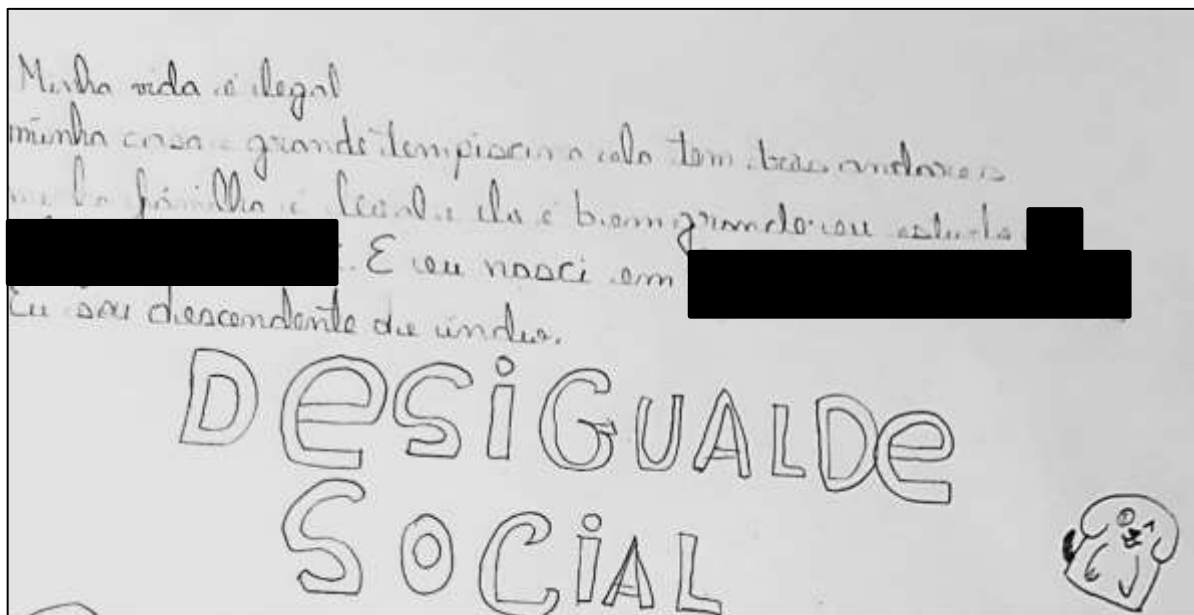 Minha vida é ilegal
minha casa é grande tem piscina ela tem tres andares
familha é legal e ela é bem grande eu estudo
E eu nasci em
Eu sou descendente de indio.
DeSiGUALDe
SOCiAL